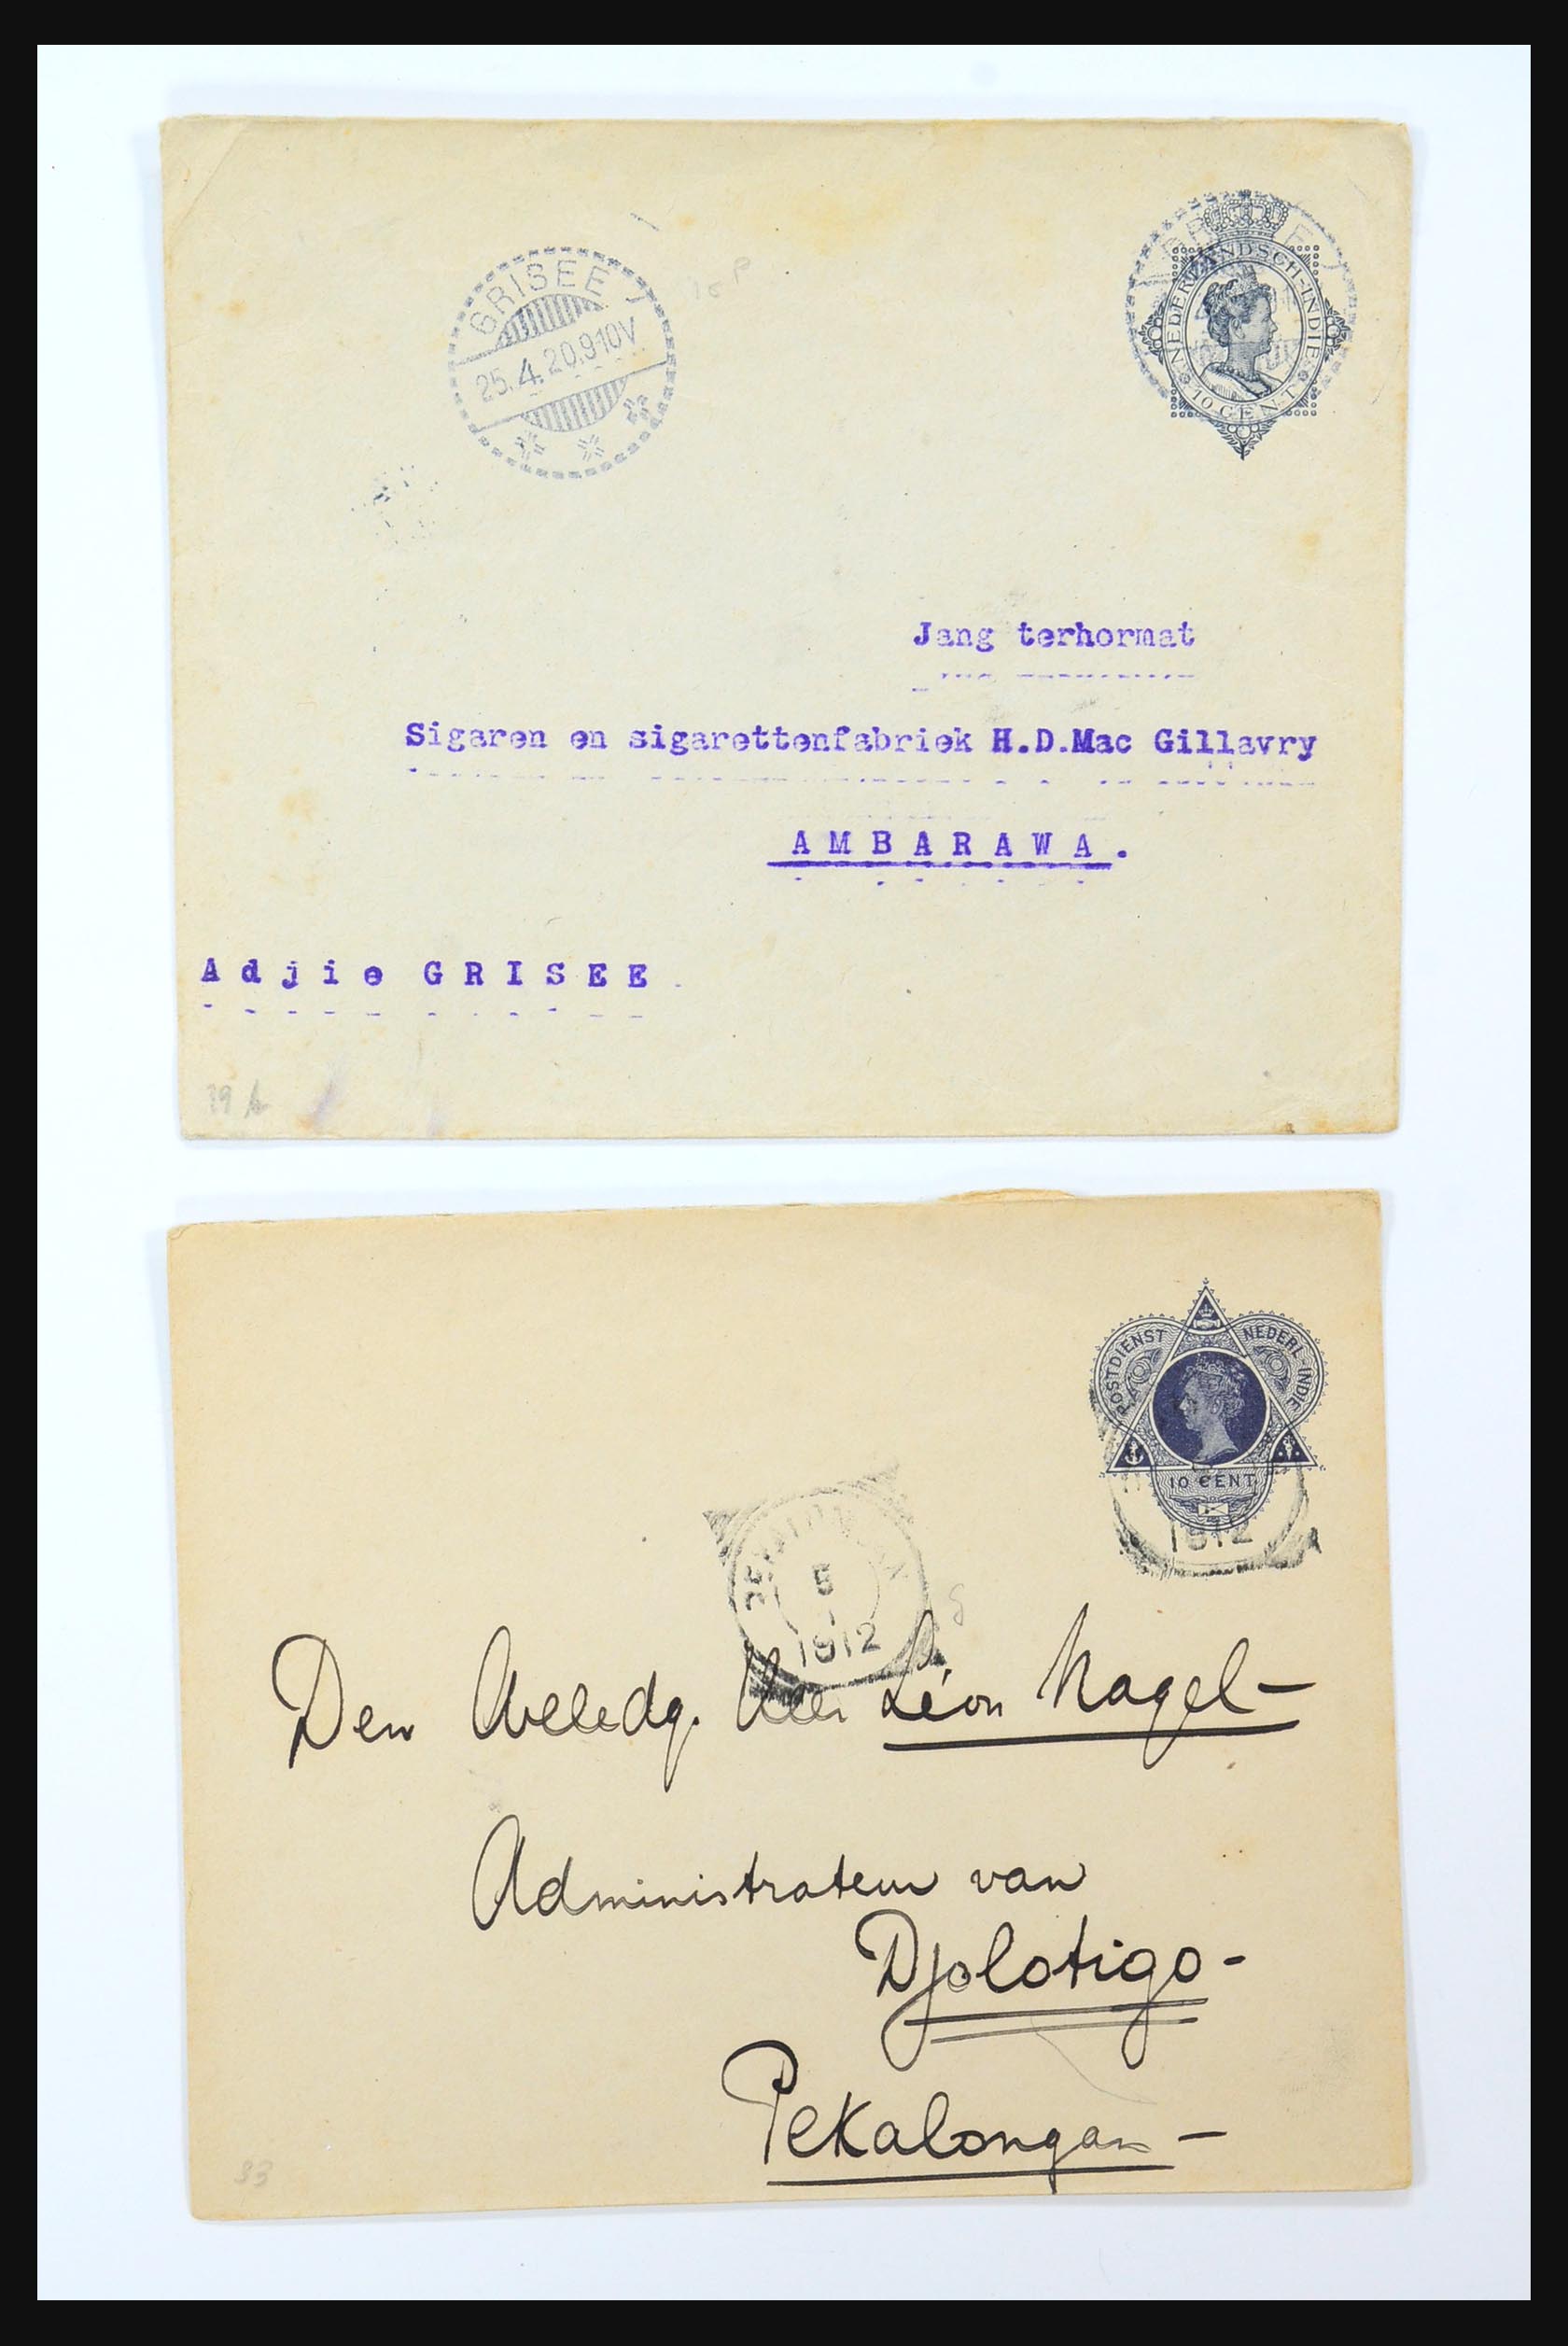 GRISEE
25.4.20.9-10V
NEDERLANDSCH-INDIE
10 CENT
Jang terhormat
Sigaren en sigarettenfabriek H.D.Mac Gillavry
AMBARAWA.
Adjie GRISEE.
39 A
POSTDIENST NEDERL-INDIE
10 CENT
1912
PEKALONGAN
5
1912
Den Weledg. Heer Léon Nagel-
Administrateur van
Djolotigo-
Pekalongan-
33